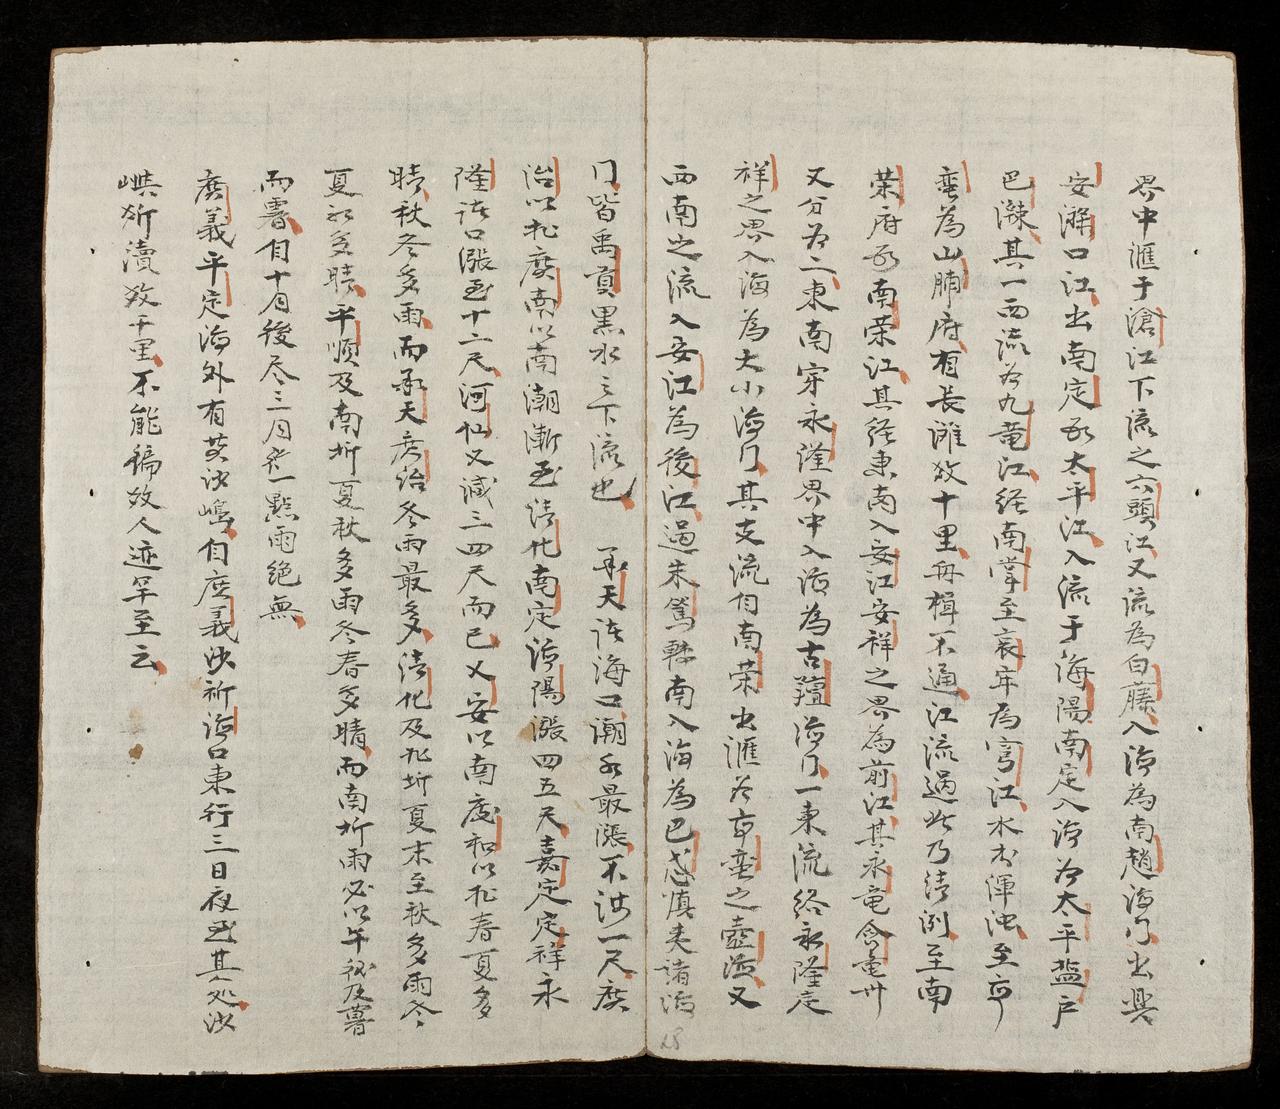 界中滙于滄江下流之六頭江又流為白藤入海為南趙海门出興
安瀰口江出南定至太平江入流于海陽南定入海為太平塩户
巴溂其一西流為九竜江経南掌至哀牢為穹江水本渾浊至高
蛮為山腑府有長滩数十里舟楫不通江流過此乃清冽至南
荣府為南荣江其経東南入安江安祥之界為前江其永竜含竜卅
又分為二東南穿永隆界中入海為古䃪海门一東流絡永隆定
祥之界入海為大小海门其支流自南荣出滙為高蛮之壺海又
西南之流入安江為後江過朱篤轉南入海為巴忒慎美諸海
门皆禹貢黒水之下流也 承天諸海口潮水最漲不满一尺廣
治以北廣南以南潮漸至清化南定海陽漲四五尺嘉定定祥永
隆諸口漲至十二尺河仙又減三四尺而已又安以南廣和以北春夏多
晴秋冬多雨而承天廣治冬雨最多清化及北圻夏末至秋多雨冬
夏水多晴平順及南圻夏秋多雨冬春多晴而南圻雨必以午後及暮
而霽自十月後尽三月無一點雨絶無
廣義平定海外有黄沙嶋自廣義沙祈海口東行三日夜至其処沙
㠗圻瀆数千里不能徧故人迹罕至云